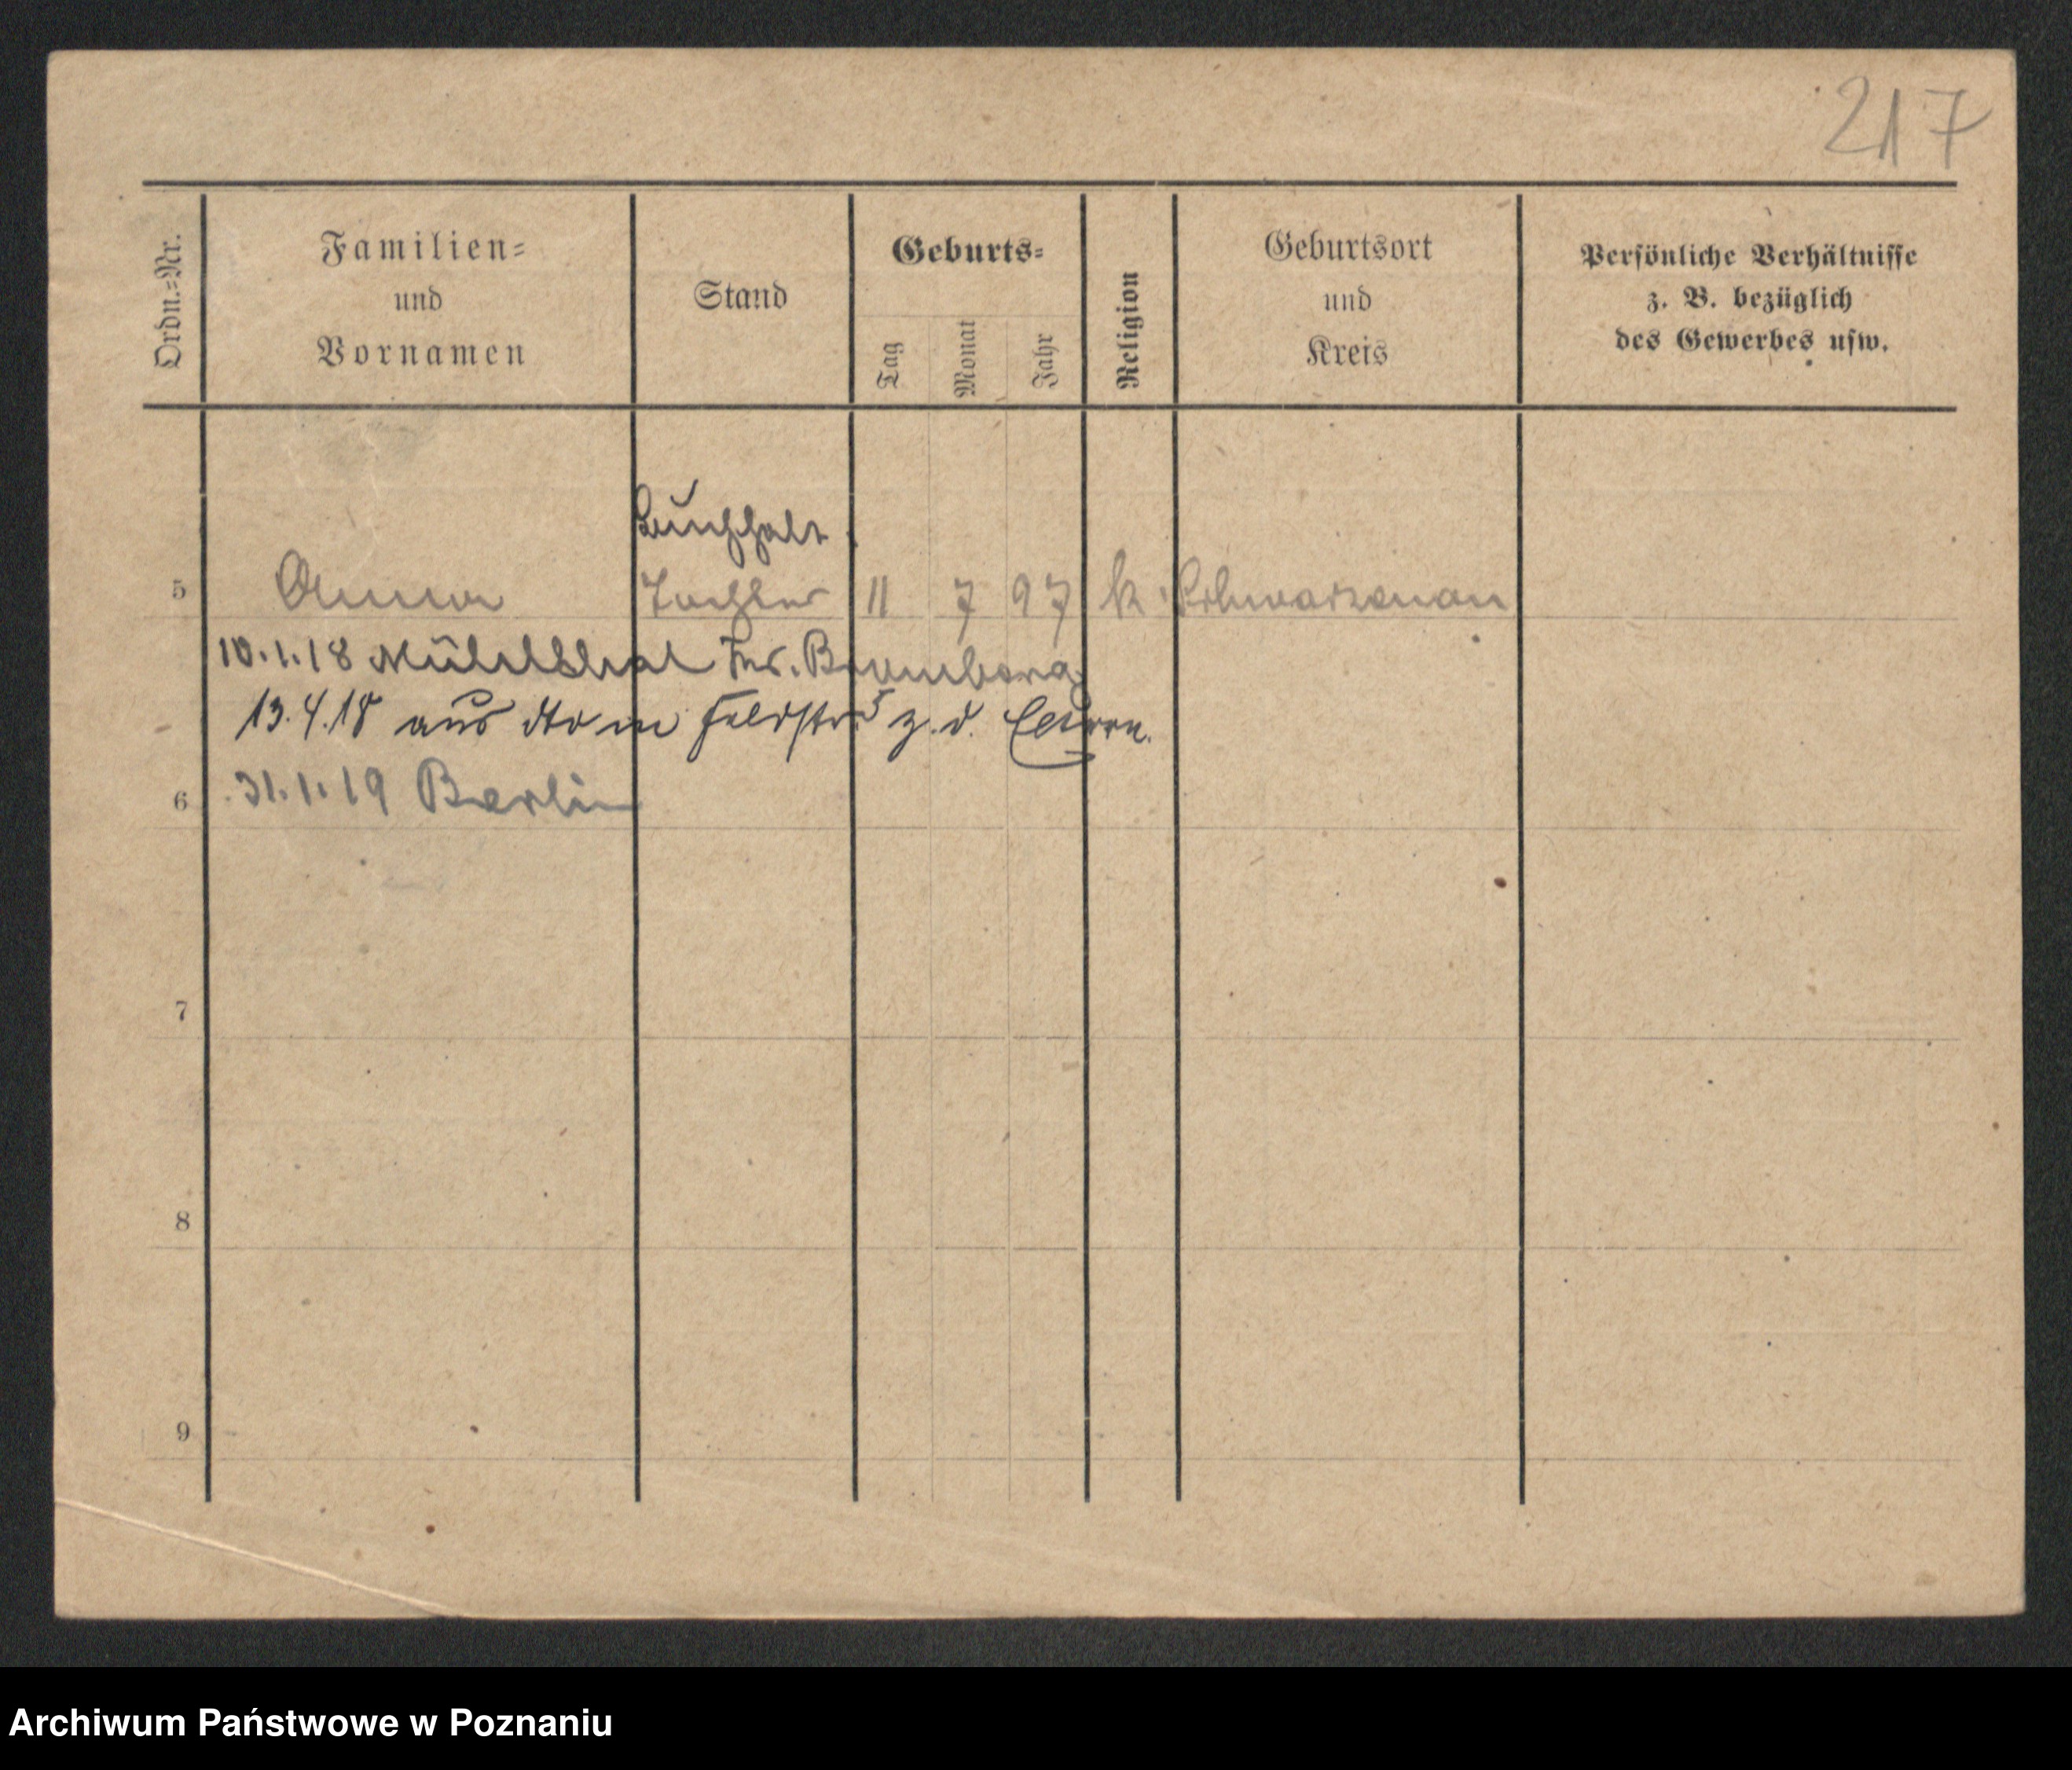 217
Ordn.-Nr.
Familien-
und
Vornamen
Stand
Geburts-
Tag
Monat
Jahr
Religion
Geburtsort
und
Kreis
Persönliche Verhältnisse
z. B. bezüglich
des Gewerbes usw.
Buchhalt.
5 Anna Tochter 11 7 97 k. Schwarzenau
10.1.18 Mühlthal Krs. Bromberg
13.4.18 aus dto in Feldstr. 5 z. d. Eltern.
6 31.1.19 Berlin
7
8
9
Archiwum Państwowe w Poznaniu